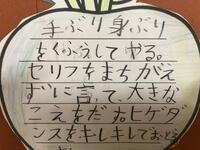 手ぶり身ぶり
をくふうしてやる。
セリフをまちがえ
ずに言て、大きな
こえをだす。ヒゲダ
ンスをキレキレでおど